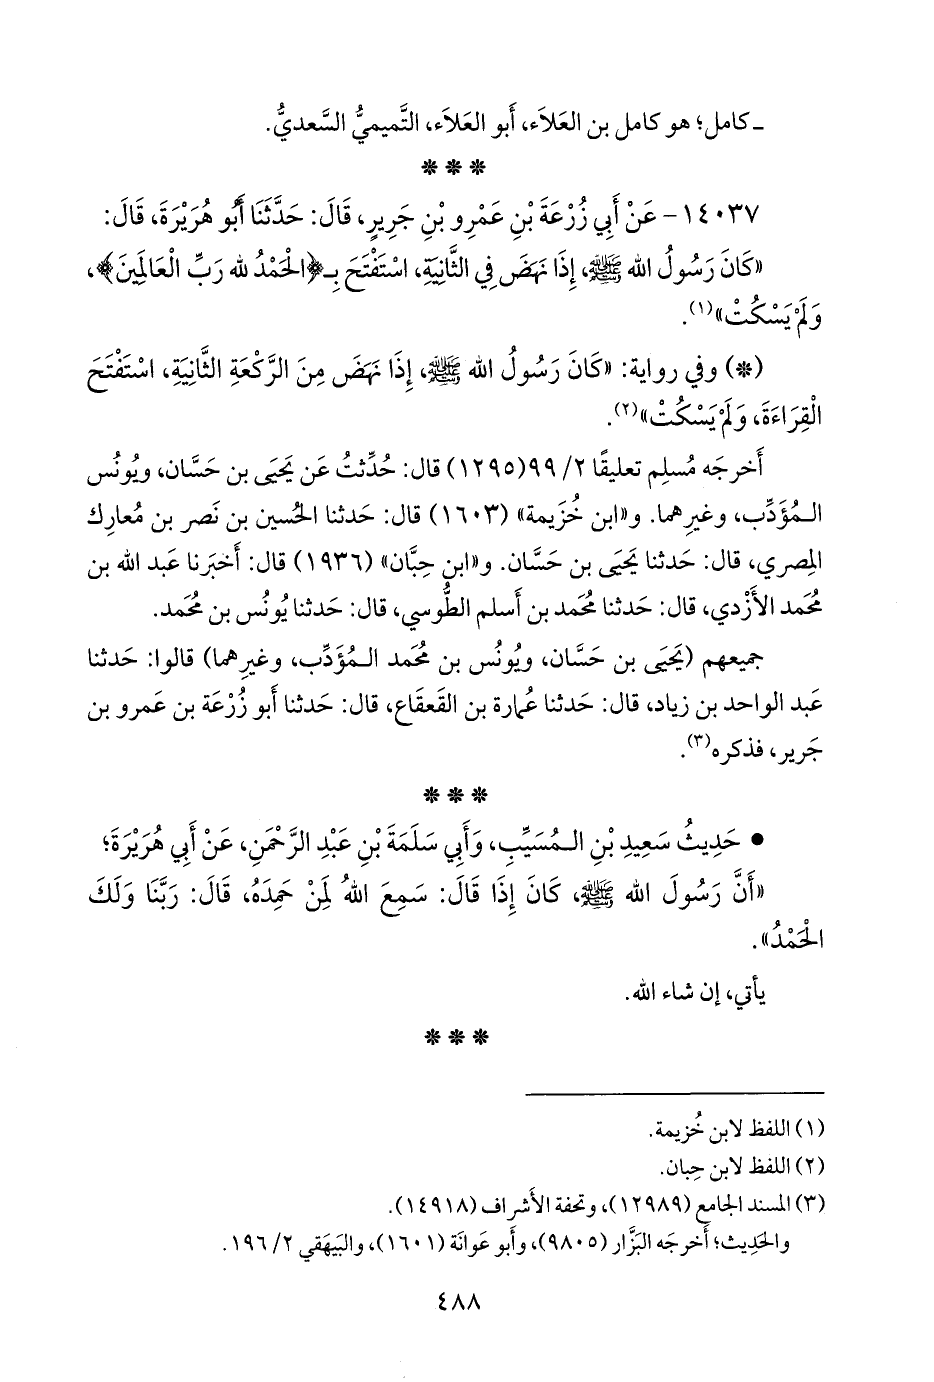 ـ كامل؛ هو كامل بن العَلاَء، أَبو العَلاَء، التَّميميُّ السَّعديُّ.
* * *
١٤٠٣٧ - عَنْ أَبِي زُرْعَةَ بْنِ عَمْرِو بْنِ جَرِيرٍ، قَالَ: حَدَّثَنَا أَبُو هُرَيْرَةَ، قَالَ:
«كَانَ رَسُولُ الله ﷺ، إِذَا نَهَضَ فِي الثَّانِيَةِ، اسْتَفْتَحَ بِـ﴿الْحَمْدُ لله رَبِّ الْعَالَمِينَ﴾،
وَلَمْ يَسْكُتْ»(١).
(*) وفي رواية: «كَانَ رَسُولُ الله ﷺ، إِذَا نَهَضَ مِنَ الرَّكْعَةِ الثَّانِيَةِ، اسْتَفْتَحَ
الْقِرَاءَةَ، وَلَمْ يَسْكُتْ»(٢).
أَخرجَه مُسلِم تعليقًا ٢/ ٩٩(١٢٩٥) قال: حُدِّثتُ عَن يَحيَى بن حَسَّان، ويُونُس
الـمُؤَدِّب، وغيرِهما. و«ابن خُزَيمة» (١٦٠٣) قال: حَدثنا الحُسين بن نَصر بن مُعارِك
المِصري، قال: حَدثنا يَحيَى بن حَسَّان. و«ابن حِبَّان» (١٩٣٦) قال: أَخبَرنا عَبد الله بن
مُحمد الأَزْدي، قال: حَدثنا مُحمد بن أَسلم الطُّوسي، قال: حَدثنا يُونُس بن مُحمد.
جميعهم (يَحيَى بن حَسَّان، ويُونُس بن مُحمد الـمُؤَدِّب، وغيرهما) قالوا: حَدثنا
عَبد الواحد بن زياد، قال: حَدثنا عُمارة بن القَعقَاع، قال: حَدثنا أَبو زُرْعَة بن عَمرو بن
جَرير، فذكره(٣).
* * *
• حَدِيثُ سَعِيدِ بْنِ الـمُسَيِّبِ، وَأَبِي سَلَمَةَ بْنِ عَبْدِ الرَّحْمَنِ، عَنْ أَبِي هُرَيْرَةَ؛
«أَنَّ رَسُولَ الله ﷺ، كَانَ إِذَا قَالَ: سَمِعَ اللهُ لِمَنْ حَمِدَهُ، قَالَ: رَبَّنَا وَلَكَ
الْحَمْدُ».
يأتي، إن شاء الله.
* * *
(١) اللفظ لابن خُزيمة.
(٢) اللفظ لابن حِبان.
(٣) المسند الجامع (١٢٩٨٩)، وتحفة الأَشراف (١٤٩١٨).
والحَدِيث؛ أَخرجَه البَزَّار (٩٨٠٥)، وأَبو عَوانَة (١٦٠١)، والبَيهَقي ٢/ ١٩٦.
٤٨٨